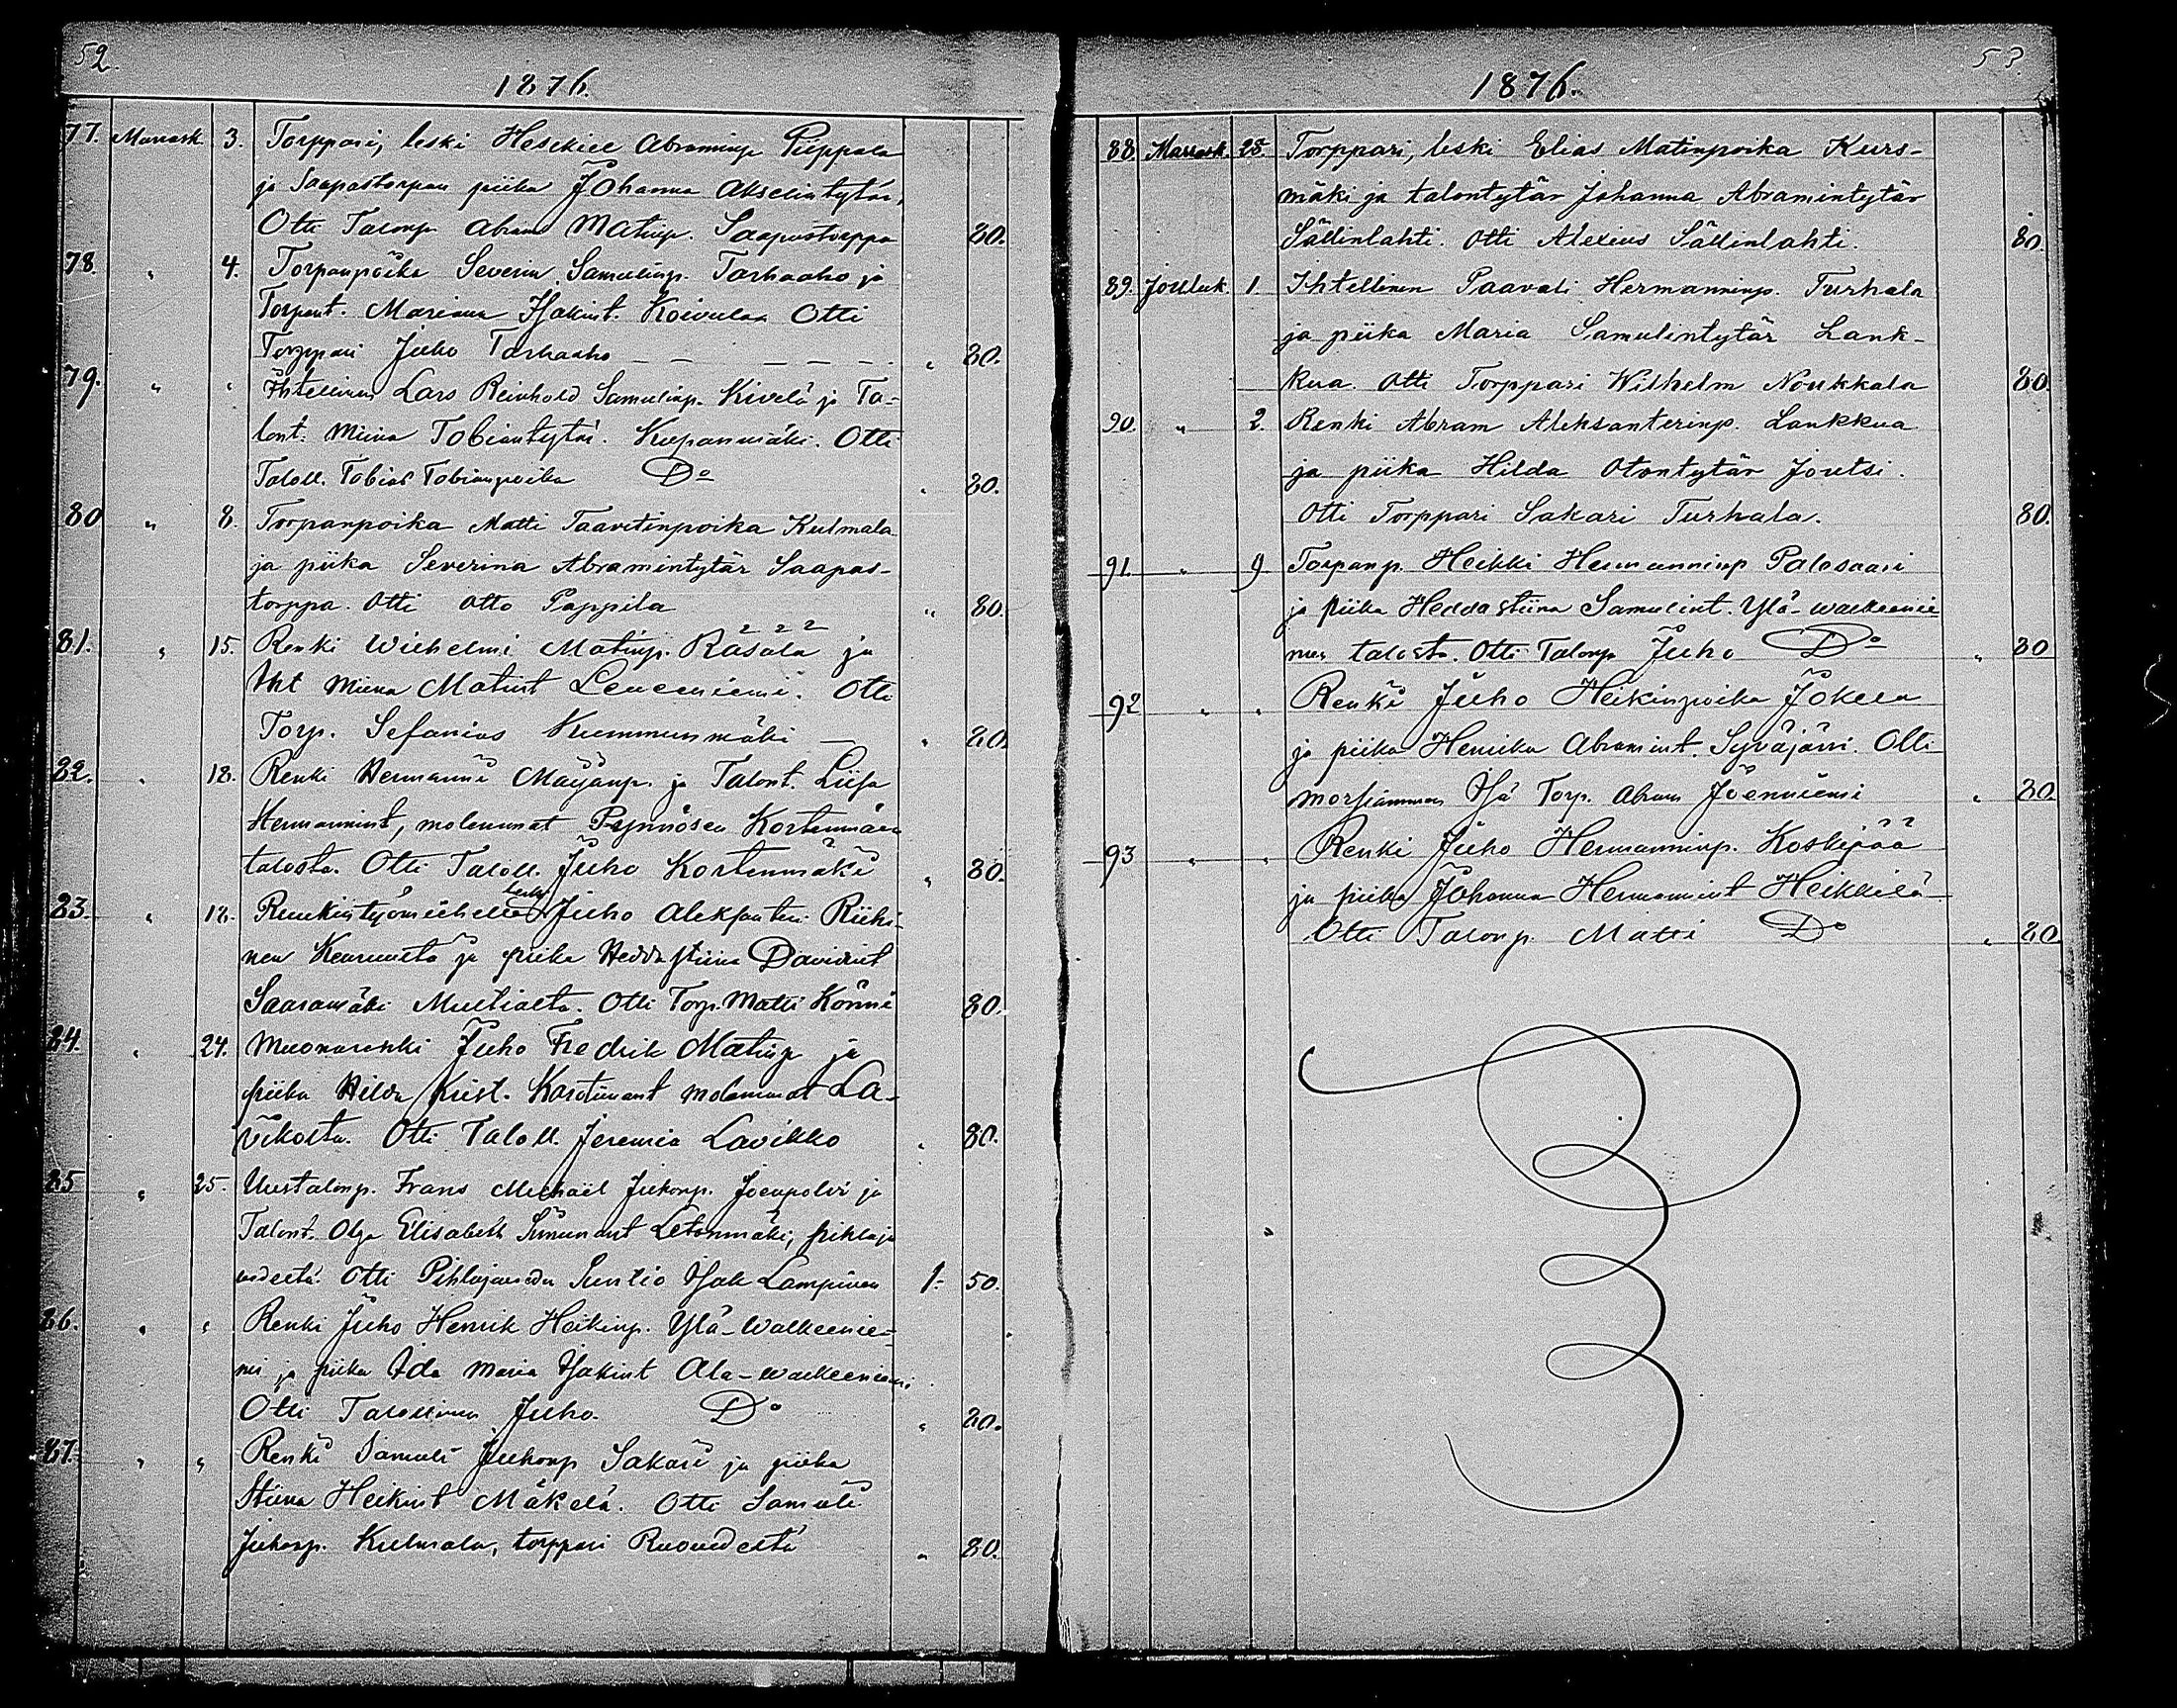 52.
1876.
77. Marrask. 3. Torppari, leski Hesekiel Abraminp. Pieppala
ja Saapastorpan piika Johanna Akselintytär,
Otti Talonp. Abram Matinp. Saapastorppa 80.
78. " 4. Torpanpoika Severin Samulinp. Tarhaaho ja
Torpant. Mariana Isakint. Koivula Otti
Torppari Juho Tarhaaho — — — — — " 80.
79. " " Ihtellinen Lars Reinhold Samulinp. Kivelä ja Ta-
lont. Miina Tobiantytär. Kupanmäki. Otti
Taloll. Tobias Tobianpoika Do " 80.
80 " 8. Torpanpoika Matti Taavitinpoika Kulmala
ja piika Severina Abramintytär Saapas-
torppa. Otti Otto Pappila " 80.
81. " 15. Renki Wilhelmi Matinp. Räsälä ja
Iht Miina Matint Leueniemi. Otti
Torp. Sefanias Kummunmäki — " 80.
82. " 18. Renki Hermanni Maijanp. ja Talont. Liisa
Hermannint, molemmat Pynnösen Kortenmäen
talosta. Otti Taloll. Juho Kortenmäki " 80.
83. " 18. Ruukintyömiehen leski Juho Aleksanteri Riiki-
nen Keuruusta ja piika Hedda Stiina Davidint
Saaramäki Multialta. Otti Torp. Matti Könni 80.
84. " 24. Muonarenki Juho Fredrik Matinp ja
piika Hilda Krist. Kustaant molemmat La-
vikosta. Otti Taloll. Jeremia Lavikko " 80.
85 " 25. Uustalonp. Frans Michaël Jukonp. Joenpolvi ja
Talont. Olga Elisabeth Simunant Letonmäki, pihlaja
vedeltä. Otti Pihlajaveden Suntio Isak Lampinen 1.- 50.
86. " " Renki Juho Henrik Heikinp. Ylä-Walkeenie-
mi ja piika Ida Maria Isakint Ala-walkeeniemi
Otti Talollinen Juho. Do " 80.
87. " " Renki Samuli Juhonp Sakari ja piika
Stiina Heikint Mäkelä. Otti Samuli
Juhonp. Kulmala, torppari Ruovedeltä " 80.
53.
1876.
88. Marrask. 28. Torppari, leski Elias Matinpoika Kurs-
mäki ja talontytär Johanna Abramintytär
Sällinlahti. Otti Alexius Sällinlahti. 80.
89. Jouluk. 1. Ihtellinen Paavali Hermanninp. Turhala
ja piika Maria Samulintytär Lank-
kua. Otti Torppari Wilhelm Noukkala 80.
90. " 2. Renki Abram Aleksanterinp. Lankkua
ja piika Hilda Otontytär Joutsi.
Otti Torppari Sakari Turhala. 80.
91. " 9 Torpanp. Heikki Hermanninp Palosaari
ja piika Hedda Stiina Samulint. Ylä-walkeenie
men talosta. Otti Talonp Juho Do " 80
92 " " Renki Juho Heikinpoika Jokela
ja piika Henrika Abramint. Syväjärvi. Otti
morsiammen Isä Torp. Abram Joenniemi " 80.
93 " " Renki Juho Hermanninp. Koskipää
ja piika Johanna Hermannint Heikkilä
Otti Talonp. Matti Do " 80